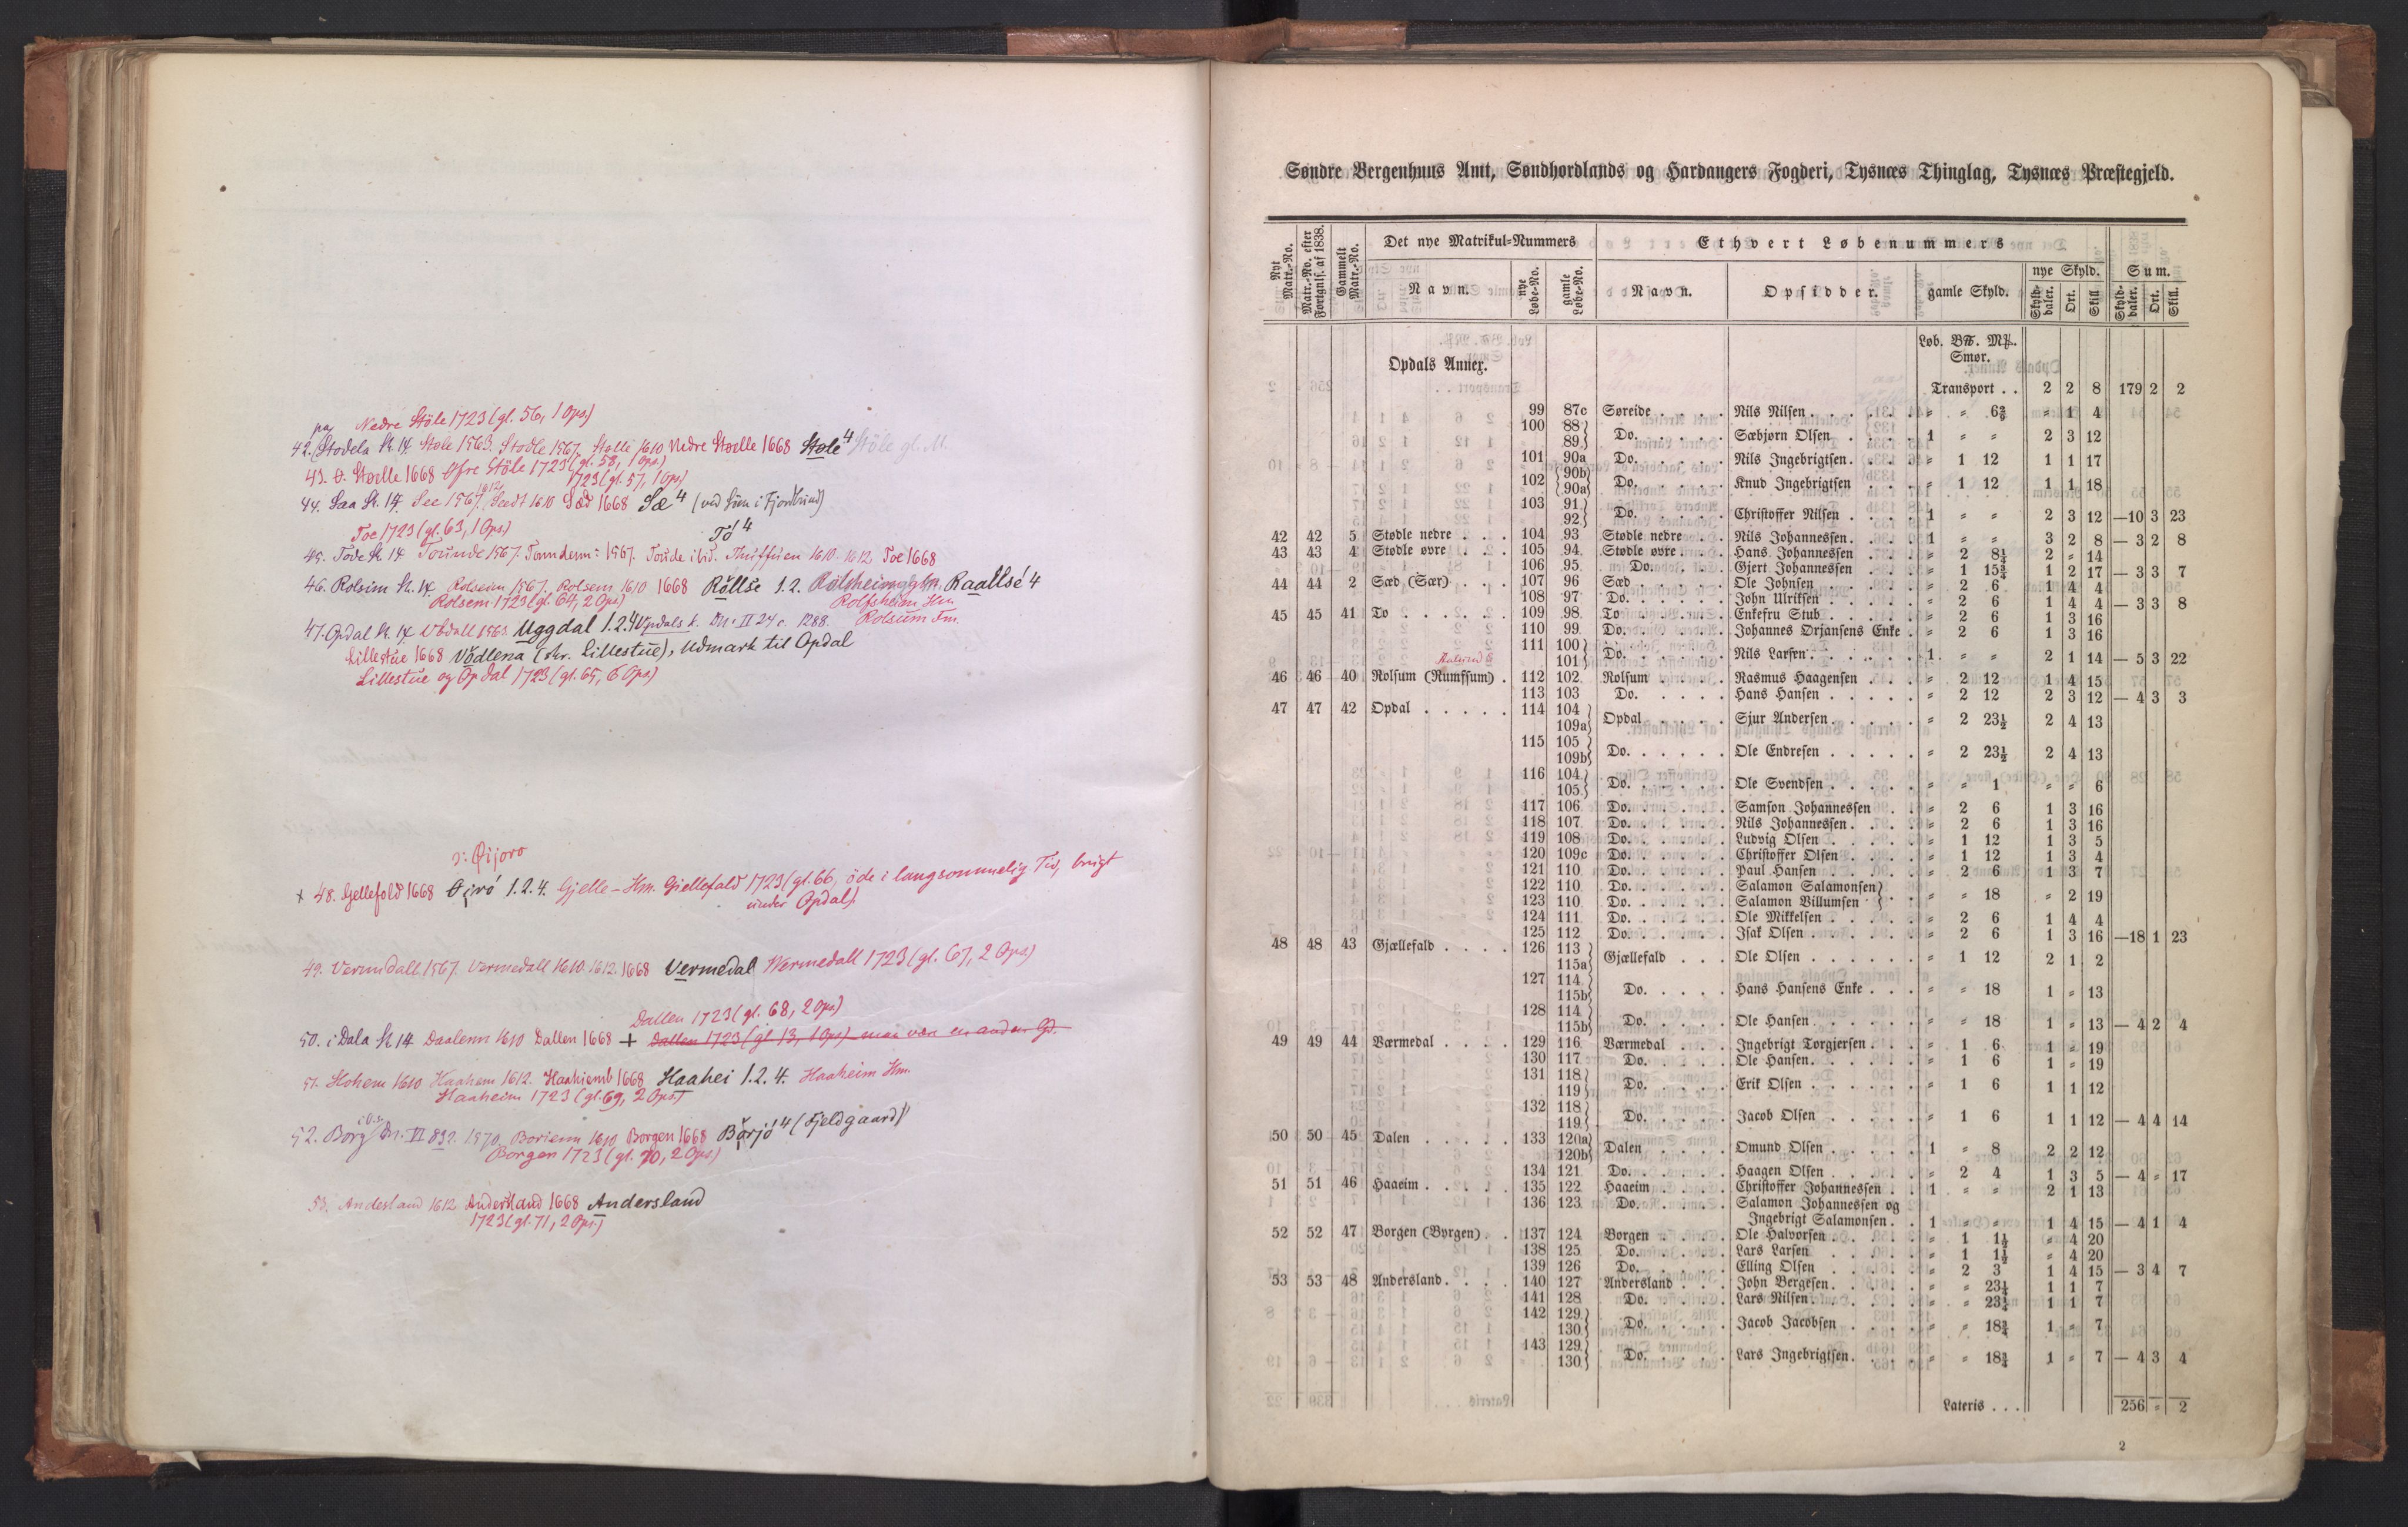 Nedre Støle 1723 (gl. 56, 1 Ops.)
paa
42. Stodela K. 14. Støle 1563. Stødle 1567. Stølle 1610 Nedre Stoelle 1668 Støle 4 Støle gl. M
43. Ø. Stoelle 1668 Øfre Støle 1723 (gl. 58, 1 Ops.)
1723 (gl. 57, 1 Ops)
44. Saa K. 14. See 1567. 1612 Sædt 1610 Sæd 1668 Sæ 4 (ved Søen i Fjordbund)
Toe 1723 (gl. 63, 1 Ops) Tó 4
45. Tode K. 14 Tounde 1567. 1567. Toude ibid. 1610. 1612 Toe 1668
46. Rolsim K. 14. Rolseim 1567. Rolsem 1610 1668 Rållse 1.2. Raallsé 4
Rolsem 1723 (gl. 64, 2 Ops) Rolfsheim Hm.
47. Opdal K. 14 Vbdall 1563 Uggdal 1.2.4 Vpdals k. Dn. II 24 c. 1288. Rolsum Fm.
Lillestue 1668 Vödlena (skr. Lillestue), Udmark til Opdal
Lillestue og Opdal 1723 (gl. 65, 6 Ops)
ɔ: Øijoro
× 48. Gjellefold 1668 Øjoró 1.2.4. Gjelle- Hm. Giellefald 1723 (gl. 66, öde i langsommelig Tid, brugt
under Opdal)
49. Vermdall 1567. Vermedall 1610. 1612. 1668 Vermedal Wermedall 1723 (gl. 67, 2 Ops)
Dallen 1723 (gl. 68, 2 Ops)
50. i Dala K 14 Daalenn 1610 Dallen 1668 + Dallen 1723 (gl 13, 1 Ops) maa være en anden Gd.
51. Hohem 1610 Haahem 1612. Haahiemb 1668 Haahei 1.2.4. Haaheim Hm.
Haaheim 1723 (gl. 69, 2 Ops.)
52. Borg Dn. VI 832. 1570. Borienn 1610 Borgen 1668 Bårjó 4 (Fjeldgaard)
Borgen 1723 (gl. 70, 2 Ops.)
53. Andesland 1612 Andersland 1668 Andersland
1723 (gl. 71, 2 Ops.)
Søndre Bergenhuus Amt, Søndhordlands og Hardangers Fogderi, Tysnæs Thinglag, Tysnæs Præstegjeld.
Nyt Matr.-No. Matr.-No. efter Fortegnls. af 1838. Gammelt Matr.-No. Det nye Matrikul-Nummers Ethvert Løbenummers
Navn. nye Løbe-No. gamle Løbe-No. Navn. Opsidder. gamle Skyld. nye Skyld. Sum.
Skylddaler. Ort. Skill. Skylddaler. Ort. Skill.
Løb. B℔. M℔.
Opdals Annex. Smør.
Transport . . 2 2 8 179 2 2
99 87c Søreide . . . . Nils Nilsen . . . . . = = 6⅖ = 1 4
100 88 89 Do. . . . . Sæbjørn Olsen . . . 1 = = 2 3 12
101 90a Do. . . . . Nils Ingebrigtsen . . = 1 12 1 1 17
102 90b 90a Do. . . . . Knud Ingebrigtsen . . = 1 12 1 1 18
103 91 92 Do. . . . . Christoffer Nilsen . . 1 = = 2 3 12 — 10 3 23
42 42 5 Stødle nedre . . . 104 93 Stødle nedre . . Nils Johannessen . . 1 = = 3 2 8 — 3 2 8
43 43 4 Stødle øvre . . . 105 94 Stødle øvre . . . Hans Johannessen . . = 2 8¼ 2 = 14
106 95 Do. . . . . Gjert Johannessen . . = 1 15¾ 1 2 17 — 3 3 7
44 44 2 Sæd (Sær) . . . 107 96 Sæd . . . . . Ole Johnsen . . . . = 2 6 1 4 4
108 97 Do. . . . . John Ulriksen . . . . = 2 6 1 4 4 — 3 3 8
45 45 41 To . . . . . . 109 98 To . . . . . Enkefru Stub . . . . = 2 6 1 3 16
110 99 Do. . . . . Johannes Orjansens Enke . = 2 6 1 3 16
111 100 101 Do. . . . . Nils Larsen . . . . . 1 = = 2 1 14 — 5 3 22
46 46 40 Rolsum (Rumssum) . 112 102 Rolsum . . . . Rasmus Haagensen . . = 2 12 1 4 15
113 103 Do. . . . . Hans Hansen . . . . = 2 12 2 3 12 — 4 3 3
47 47 42 Opdal . . . . . 114 104 109a Opdal . . . . Sjur Andersen . . . . = 2 23½ 2 4 13
115 105 109b Do. . . . . Ole Endresen . . . . = 2 23½ 2 4 13
116 104 105 Do. . . . . Ole Svendsen . . . . = = 1 = = 6
117 106 Do. . . . . Samson Johannessen . . = 2 6 1 3 16
118 107 Do. . . . . Nils Johannessen . . . = 2 6 1 3 16
119 108 Do. . . . . Ludvig Olsen . . . . = 1 12 1 3 5
120 109c Do. . . . . Christoffer Olsen . . . = 1 12 1 3 4
121 110 Do. . . . . Paul Hansen . . . . = 2 6 1 3 7
122 110 Do. . . . . Salamon Salamonsen
123 110 Do. . . . . Salamon Villumsen . . = = 18 = 2 19
124 111 Do. . . . . Ole Mikkelsen . . . . = 2 6 1 4 4
125 112 Do. . . . . Isak Olsen . . . . . = 2 6 1 3 16 — 18 1 23
48 48 43 Gjællefald . . . . 126 113 115a Gjællefald . . . Ole Olsen . . . . . = 1 12 2 1 2
127 114 115b Do. . . . . Hans Hansens Enke . . = = 18 1 = 13
128 114 115b Do. . . . . Ole Hansen . . . . . = = 18 1 = 13 — 4 2 4
49 49 44 Værmedal . . . . 129 116 Værmedal . . . Ingebrigt Torgjersen . . = 1 6 1 = 19
130 117 Do. . . . . Ole Hansen . . . . . = 1 6 1 = 19
131 118 119 Do. . . . . Erik Olsen . . . . . = 1 6 1 1 12
132 118 119 Do. . . . . Jacob Olsen . . . . . = 1 6 1 1 12 — 4 4 14
50 50 45 Dalen . . . . . 133 120a 120b Dalen . . . . Omund Olsen . . . . 1 = 8 2 2 12
134 121 Do. . . . . Haagen Olsen . . . . = 2 4 1 3 5 — 4 = 17
51 51 46 Haaeim . . . . . 135 122 Haaeim . . . . Christoffer Johannessen . . 1 = = 2 1 13
136 123 Do. . . . . Salamon Johannessen og
Ingebrigt Salamonsen . . 1 = = 1 4 15 — 4 1 4
52 52 47 Borgen (Byrgen) . . 137 124 Borgen . . . . Ole Halvorsen . . . . = 1 1½ = 4 20
138 125 Do. . . . . Lars Larsen . . . . = 1 1½ = 4 20
139 126 Do. . . . . Elling Olsen . . . . = 2 3 1 4 15 — 3 4 7
53 53 48 Andersland . . . . 140 127 Andersland . . . John Bergesen . . . . = = 23¼ 1 1 7
141 128 Do. . . . . Lars Nilsen . . . . . = = 23¼ 1 1 7
142 129 130 Do. . . . . Jacob Jacobsen . . . = = 18¾ 1 = 7
143 129 130 Do. . . . . Lars Ingebrigtsen . . . = = 18¾ 1 = 7 — 4 3 4
Lateris . . . 256 = 2
2